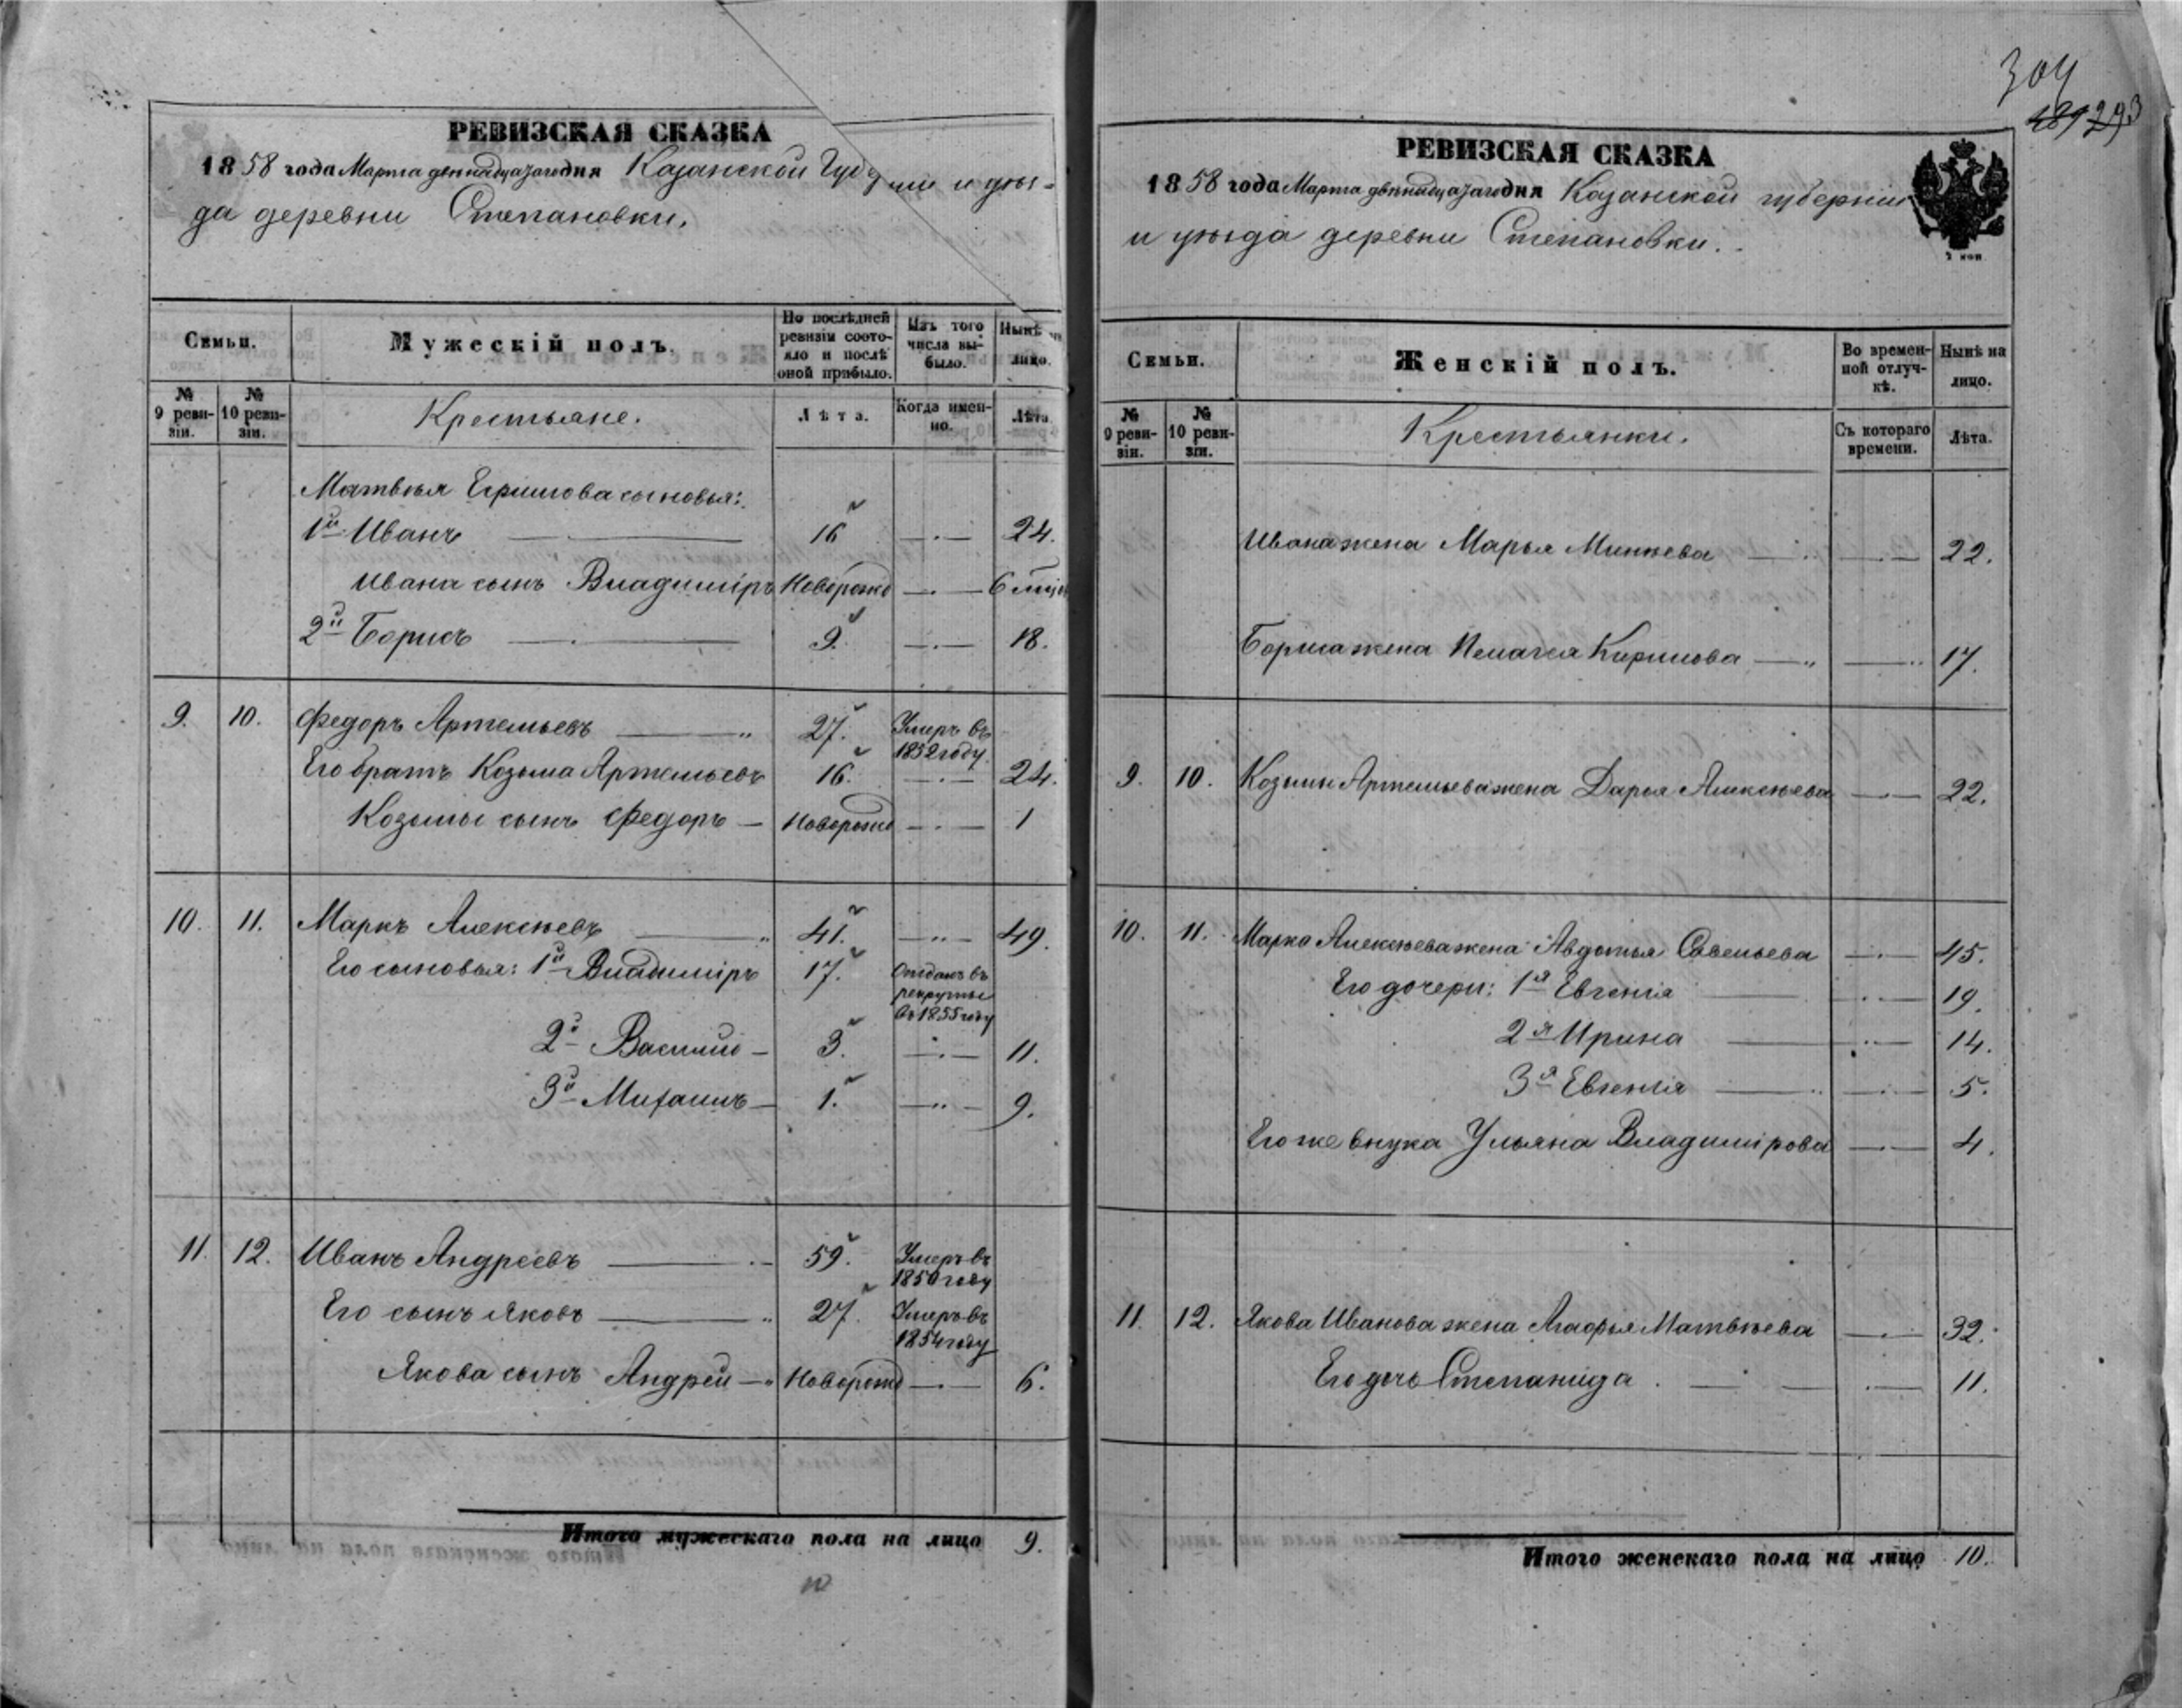 РЕВИЗСКАЯ СКАЗКА
1858 года Марта двенадцатаго дня Казанской Губерніи и уѣз-
да деревни Степановки.
Семьи.
Мужескій полъ.
По послѣдней ревизіи состояло и послѣ оной прибыло.
Изъ того числа выбыло.
Нынѣ на лицо.
№ 9 ревизіи.
№ 10 ревизіи.
Крестьяне.
Лѣта.
Когда именно.
Лѣта.
Матвѣя Ефимова сыновья:
1й Иванъ 16 24.
Ивана сынъ Владиміръ Новорожд 6 мцов
2й Борисъ 9. 18.
9. 10. Федоръ Артемьевъ 27. Умеръ въ 1852 году
Его братъ Козьма Артемьевъ 16. 24.
Козьмы сынъ Федоръ Новорожд 1
10. 11. Маркъ Алексѣевъ 41. 49.
Его сыновья: 1й Владиміръ 17. Отданъ въ рекруты въ 1855 году
2й Василій 3. 11.
3й Михаилъ 1. 9.
11. 12. Иванъ Андреевъ 59. Умеръ въ 1850 году
Его сынъ Яковъ 27. Умеръ въ 1854 году
Якова сынъ Андрей Новорожд 6.
Итого мужескаго пола на лицо 9.
304
293
РЕВИЗСКАЯ СКАЗКА
1858 года Марта двенадцатаго дня Казанской губерніи
и уѣзда деревни Степановки.
2 коп
Семьи.
Женскій полъ.
Во временной отлучкѣ.
Нынѣ на лицо.
№ 9 ревизіи.
№ 10 ревизіи.
Крестьянки.
Съ котораго времени.
Лѣта.
Ивана жена Марья Минѣева 22.
Бориса жена Пелагея Кирилова 17.
9. 10. Козьмы Артемьева жена Дарья Алексѣева 22.
10. 11. Марка Алексѣева жена Авдотья Савельева 45.
Его дочери: 1я Евгенія 19.
2я Ирина 14.
3я Евгенія 5.
Его же внука Ульяна Владимірова 4.
11. 12. Якова Иванова жена Агафья Матвѣева 32.
Его дочь Степанида 11.
Итого женскаго пола на лицо 10.